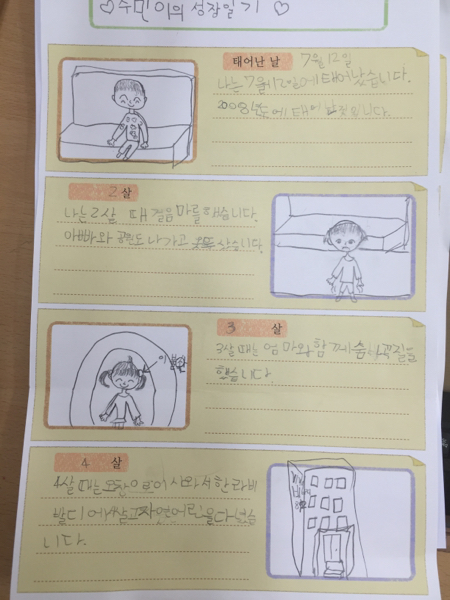 ♡수민이의 성장일기♡
태어난 날 7월12일
나는 7월12일에 태어났습니다.
2008년도에 태어 입니다.
2 살
나는2살 때 걸음마를했습니다.
아빠와 공원도 나가고 습니다.
3 살
3살 때는 엄마와 함께 숨바꼭질을
했습니다.
이불안
4 살
4살 때는 이사와서한라비
발디에 살고자연어린 을다녔습
니다.